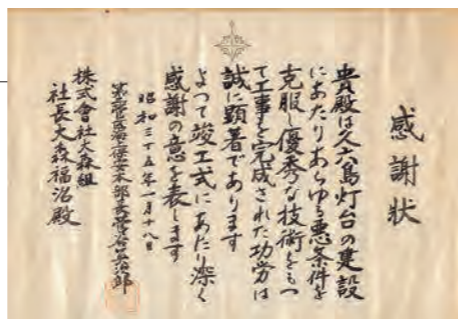 感謝状
貴殿は久六島灯台の建設
にあたりあらゆる悪条件を
克服し優秀な技術をもつ
て工事を完成された功労は
誠に顕著であります
よつて竣工式にあたり深く
感謝の意を表します
昭和三十五年一月十八日
株式會社大森組
社長大森福治殿